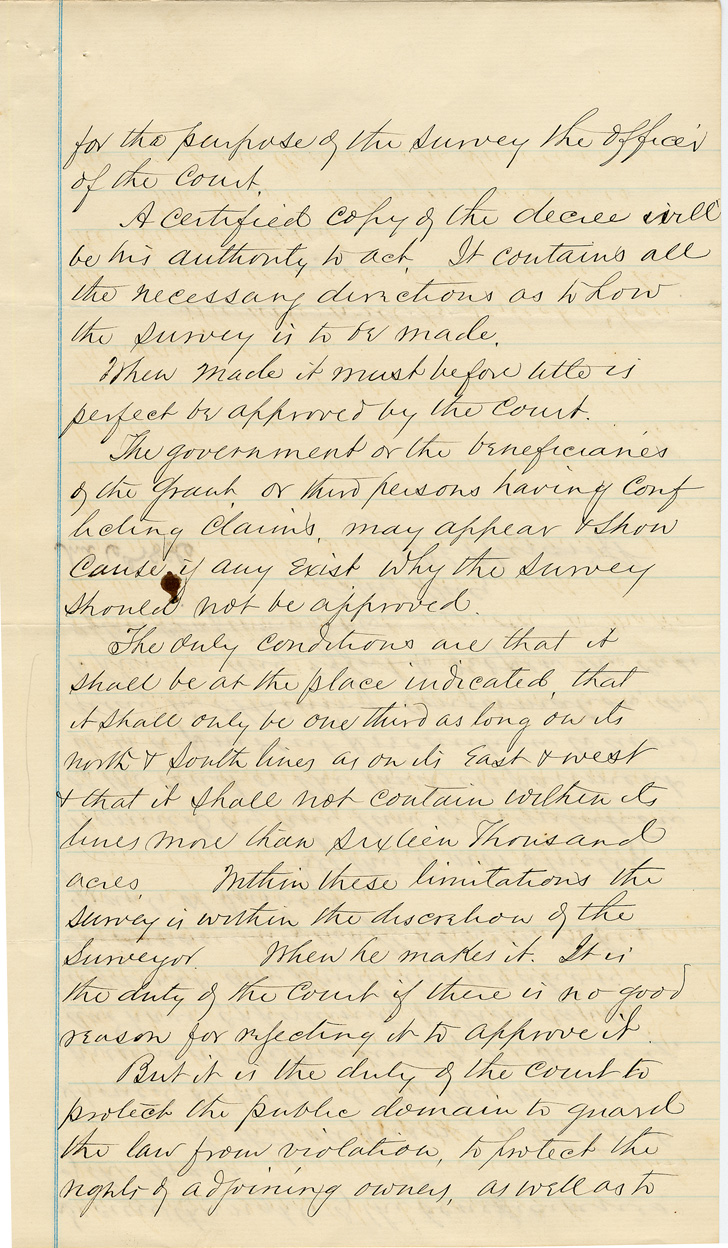 for the purpose of the survey the officer
of the Court.
A certified copy of the decree will
be his authority to act. It contains all
the necessary directions as to how
the survey is to be made.
When made it must before title is
perfect be approved by the Court.
The government or the beneficiaries
of the Grant or third persons having Conf
licting Claims, may appear & show
Cause, if any Exist why the survey
should not be approved.
The only conditions are that it
shall be at the place indicated, that
it shall only be one third as long on its
north & South lines as on its East & west
& that it shall not contain within its
lines more than sixteen Thousand
acres. Within these limitations the
survey is within the discretion of the
Surveyor. When he makes it. It is
the duty of the Court if there is no good
reason for rejecting it to approve it.
But it is the duty of the court to
protect the public domain to guard
the law from violation, to protect the
rights of adjoining owners, as well as to